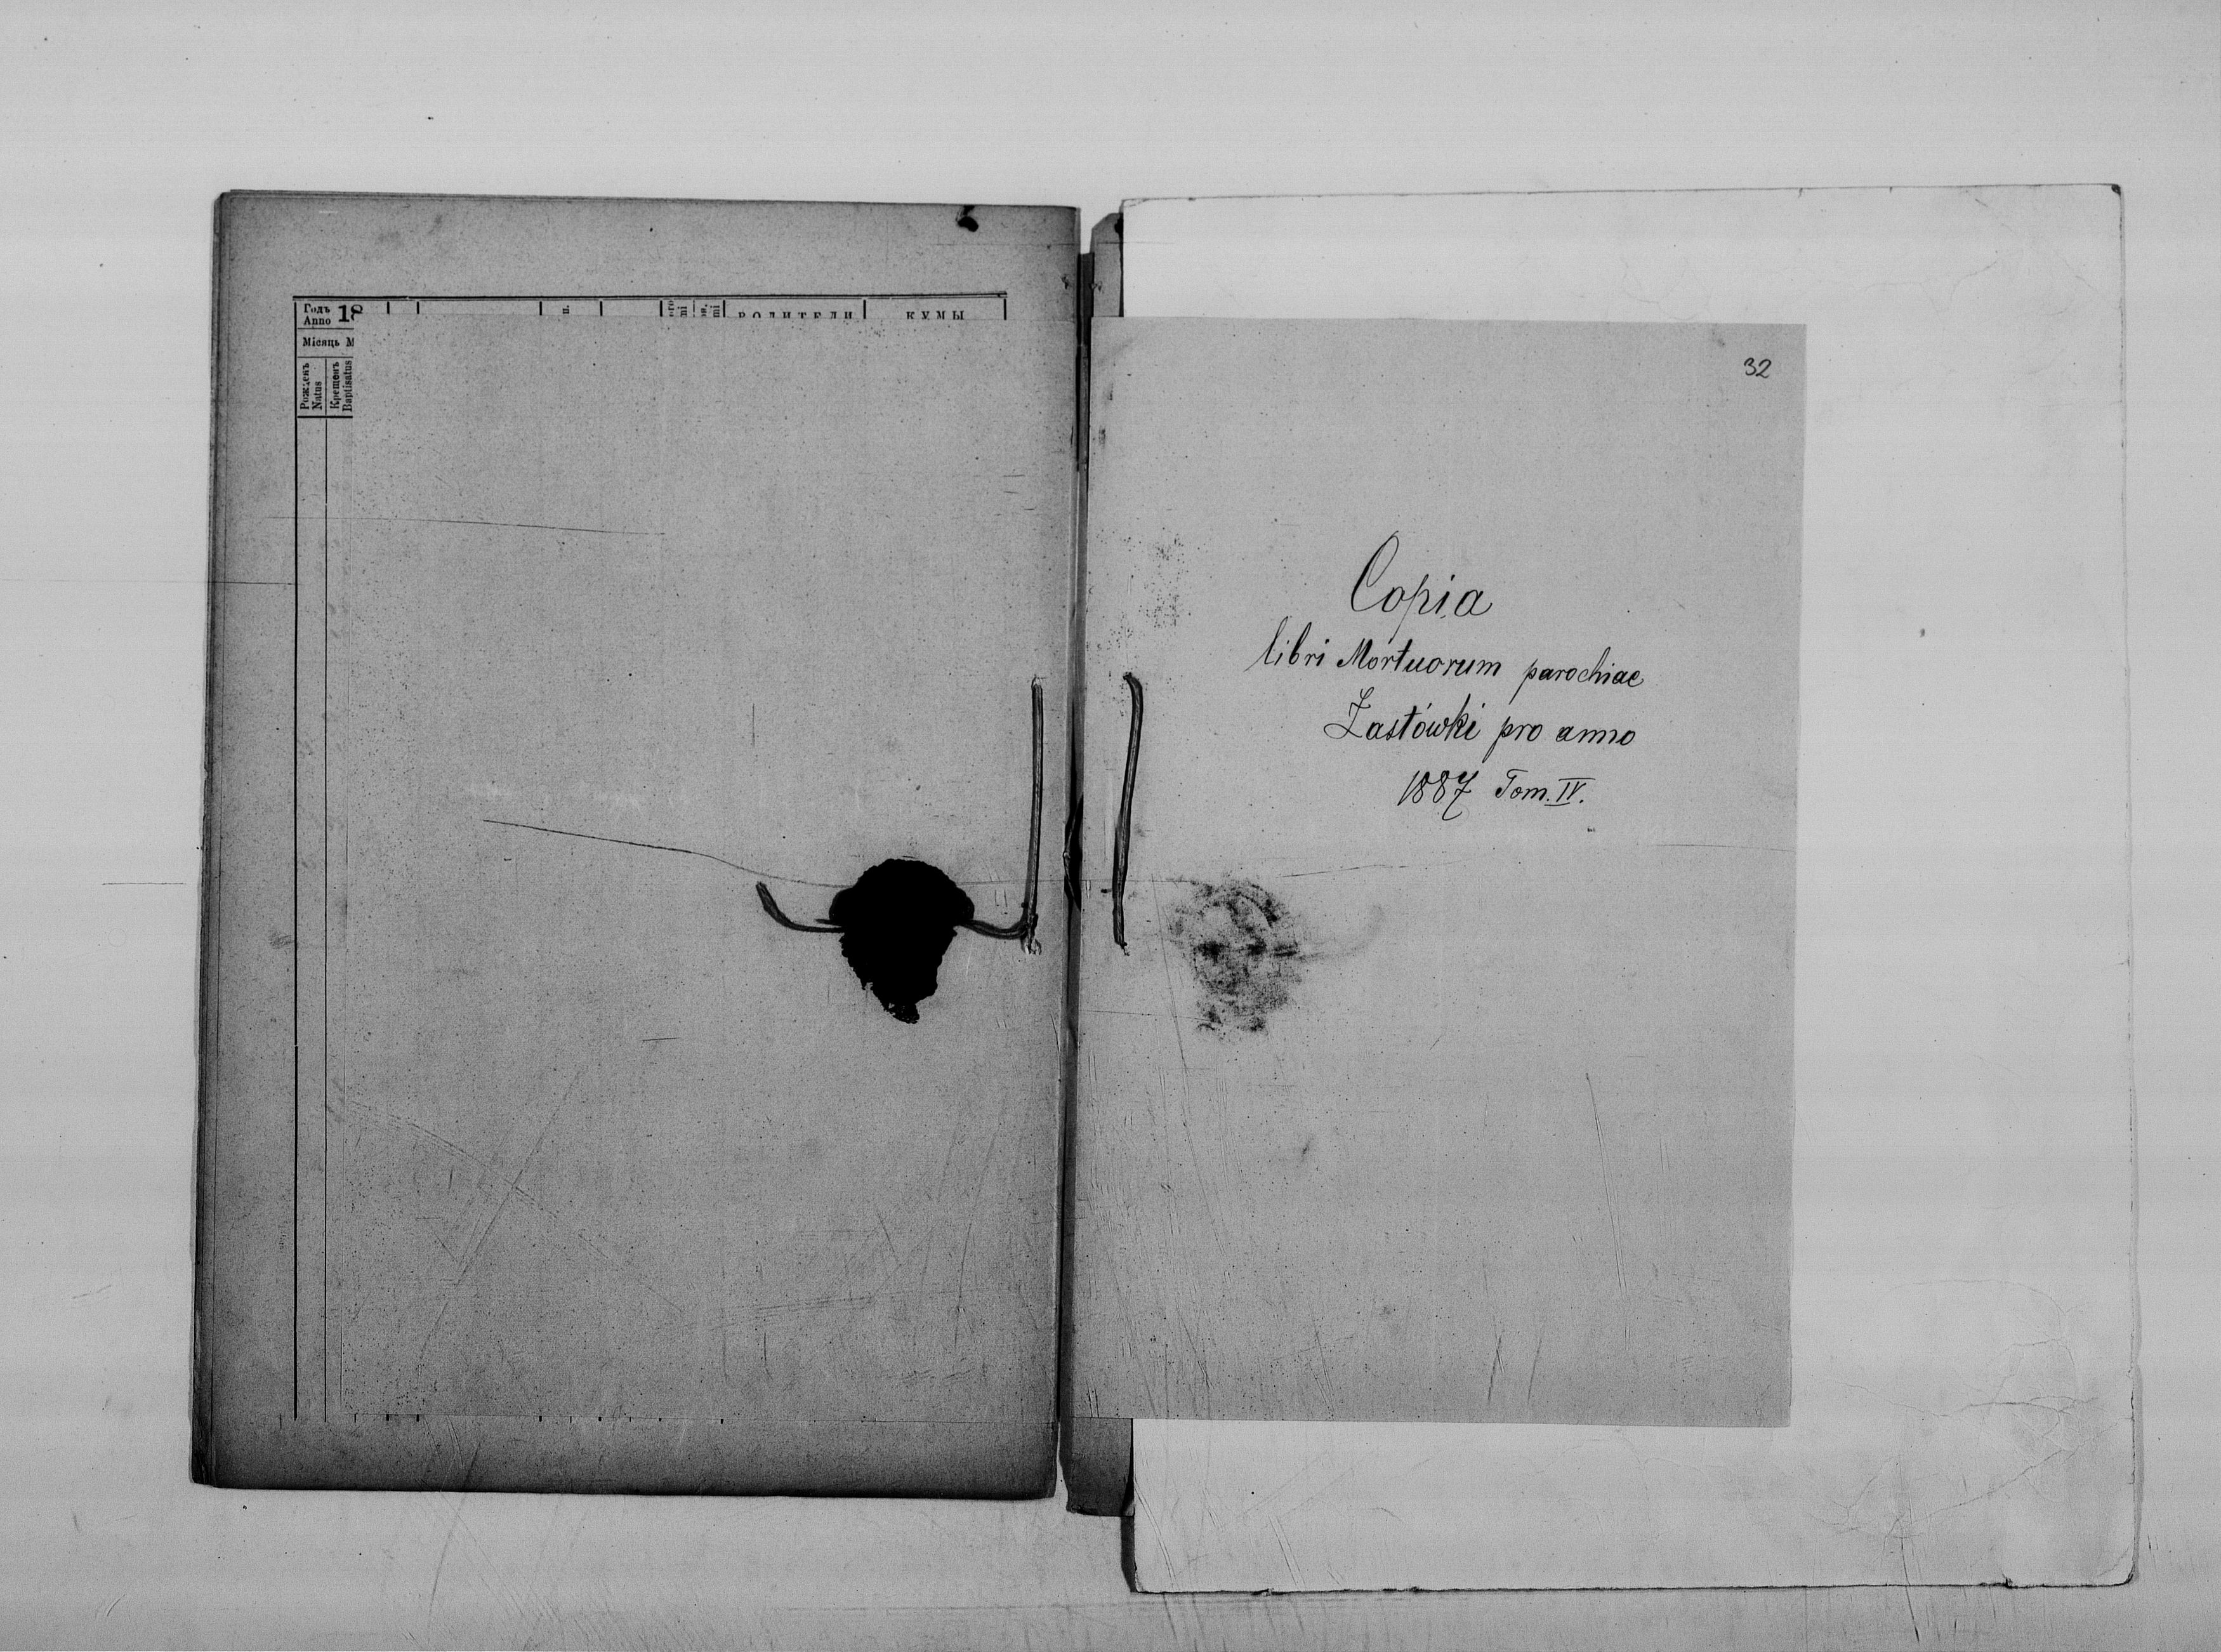 Годъ
Anno 18
Місяць M
Рожденъ
Natus
Крещенъ
Baptisatus
РОДИТЕЛИ
КУМЫ
32
Copia
libri Mortuorum parochiae
Zastówki pro anno
1887 Tom. IV.